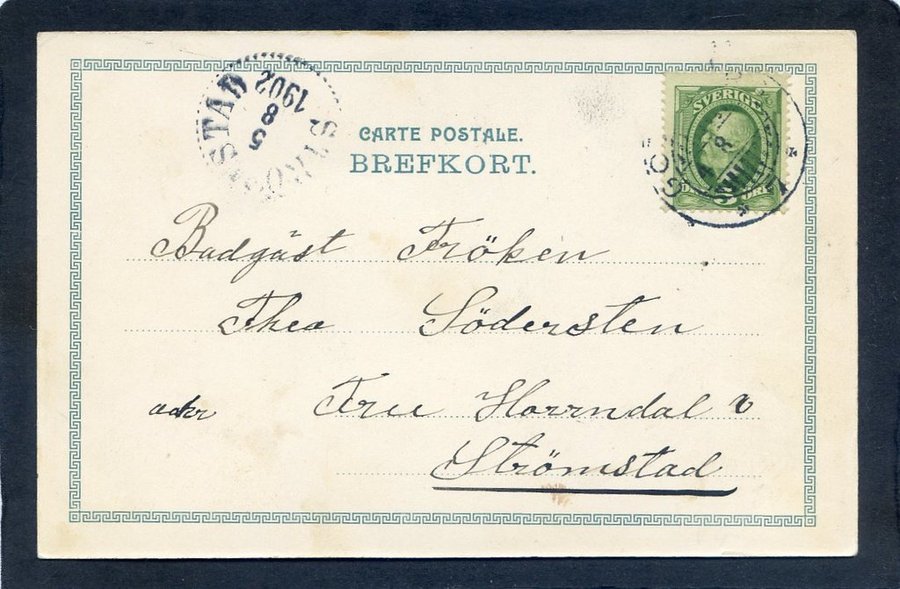 STRÖMSTAD
5
8
1902
CARTE POSTALE.
BREFKORT.
SVERIGE
5 ÖRE
Badgäst Fröken
Thea Södersten
adr Fru Horrndal
Strömstad